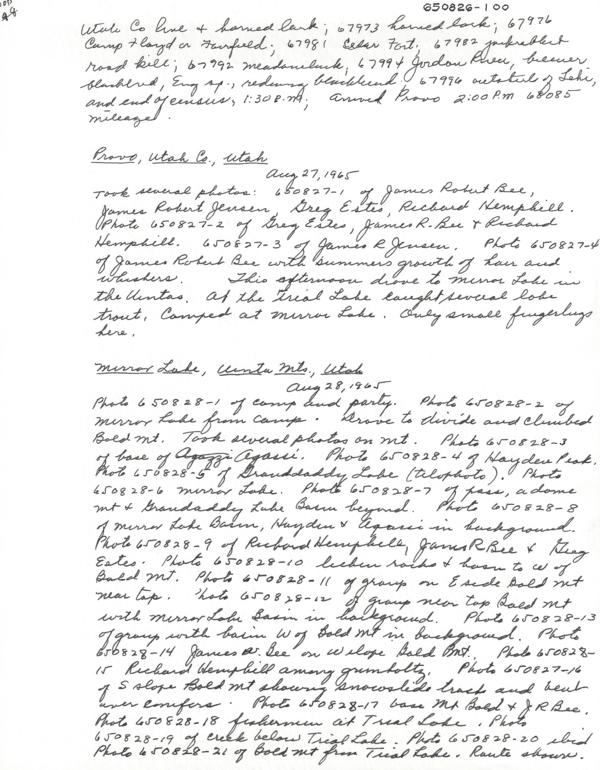 650826-100
Utah Co line + horned lark; 67973 horned lark; 67976
Camp Floyd or Fairfield; 67981 Cedar Fort; 67982 jackrabbit
road kill; 67992 meadowlark; 67994 Jordon River, brewer
blackbird, Eng sp., redwing blackbird 67996 outskirts of Lehi,
and end of census, 1:30 P.M.; Arrived Provo 2:00 P.M 68085
mileage.
Provo, Utah Co., Utah
Aug 27, 1965
Took several photos: 650827-1 of James Robert Bee,
James Robert Jensen, Greg Estes, Richard Hemphill.
Photo 650827-2 of Greg Estes, James R. Bee & Richard
Hemphill. 650827-3 of James R Jensen. Photo 650827-4
of James Robert Bee with summers growth of hair and
whiskers. This afternoon drove to Mirror Lake in
the Uintas. At the Trial Lake caught several lake
trout. Camped at Mirror Lake. Only small fingerlings
here.
Mirror Lake, Uinta Mts., Utah
Aug 28, 1965
Photo 650828-1 of camp and party. Photo 650828-2 of
Mirror Lake from camp. Drove to divide and climbed
Bald Mt. Took several photos on mt. Photo 650828-3
of base of Agassi. Photo 650828-4 of Hayden Peak.
Photo 650828-5 of Granddaddy Lake (telophoto). Photo
650828-6 Mirror Lake. Photo 650828-7 of pass, a dome
mt & Grandaddy Lake Basin beyond. Photo 650828-8
of Mirror Lake Basin, Hayden & Agassi in background.
Photo 650828-9 of Richard Hemphill, James R Bee & Greg
Estes. Photo 650828-10 lichen rocks & basin to W of
Bald Mt. Photo 650828-11 of group on E side Bald Mt
near top. Photo 650828-12 of group near top Bald Mt
with Mirror Lake Basin in background. Photo 650828-13
of group with basin W of Bald Mt in background. Photo
650828-14 James W. Bee on W slope Bald Mt. Photo 650828-
15 Richard Hemphill among Photo 650827-16
of S slope Bald Mt showing snowslide track and bent
over conifers. Photo 650828-17 base Mt Bald & J R Bee.
Photo 650828-18 fishermen at Trial Lake. Photo
650828-19 of creek below Trial Lake. Photo 650828-20 ibid
Photo 650828-21 of Bald Mt from Trial Lake. Route shown.